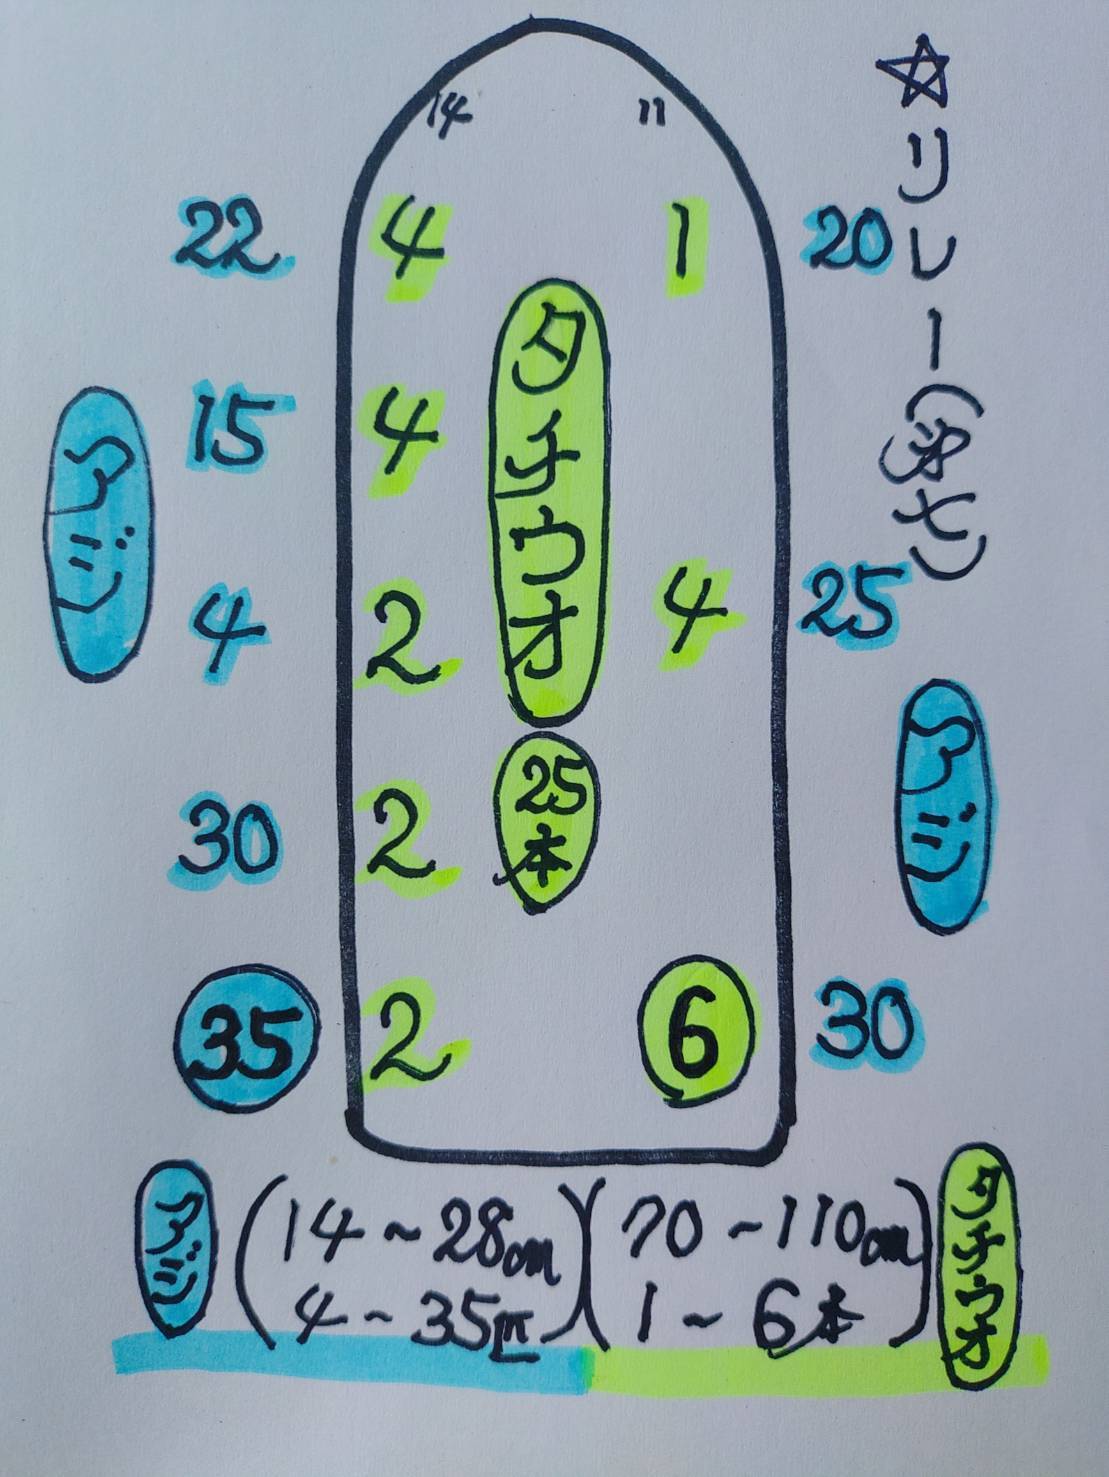 ☆リレー(第七)
14 11
22 4 1 20
タチウオ
アジ
15 4
4 2 4 25
25本
30 2
アジ
35 2 6 30
アジ (14~28cm 4~35匹) (70~110cm 1~6本) タチウオ